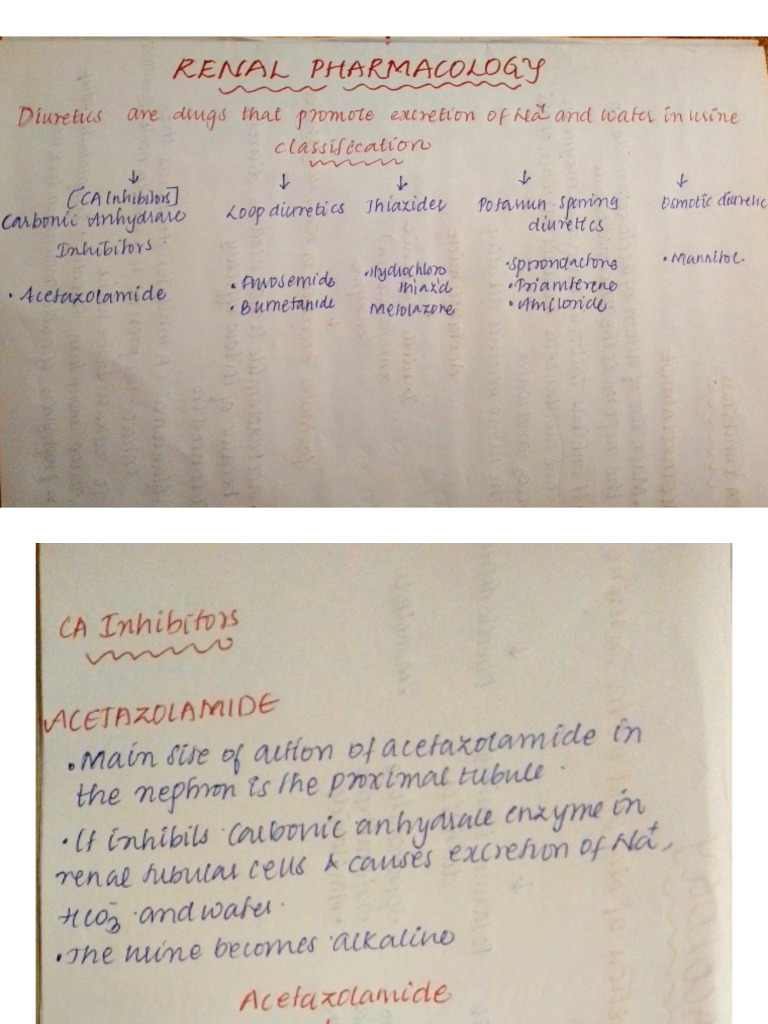 RENAL PHARMACOLOGY
Diuretics are drugs that promote excretion of Na+ and water in urine
classification
[CA Inhibitors]
Carbonic Anhydrase
Inhibitors
• Acetazolamide
Loop diuretics
• Furosemide
• Bumetanide
Thiazides
• Hydrochloro
thiazid
Metolazone
Potassium sparing
diuretics
• Spironolactone
• Triamterene
• Amiloride
Osmotic diuretic
• Mannitol
CA Inhibitors
ACETAZOLAMIDE
• Main site of action of acetazolamide in
the nephron is the proximal tubule.
• It inhibits carbonic anhydrase enzyme in
renal tubular cells & causes excretion of Na+,
HCO3- and water.
• The urine becomes alkaline
Acetazolamide